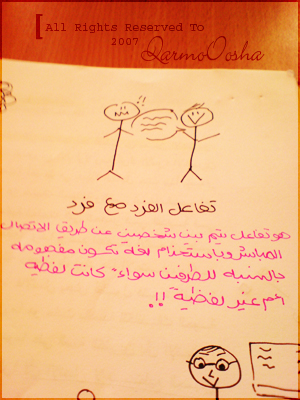 [ All Rights Reserved To
2007 QarmoOosha
!!
تفاعل الفرد مع فرد
هو تفاعل يتم بين شخصين عن طريق الاتصال
المباشر وباستخدام لغة تكون مفهومه
بالنسبه للطرفين سواء كانت لفظية
ام غير لفظية !!.